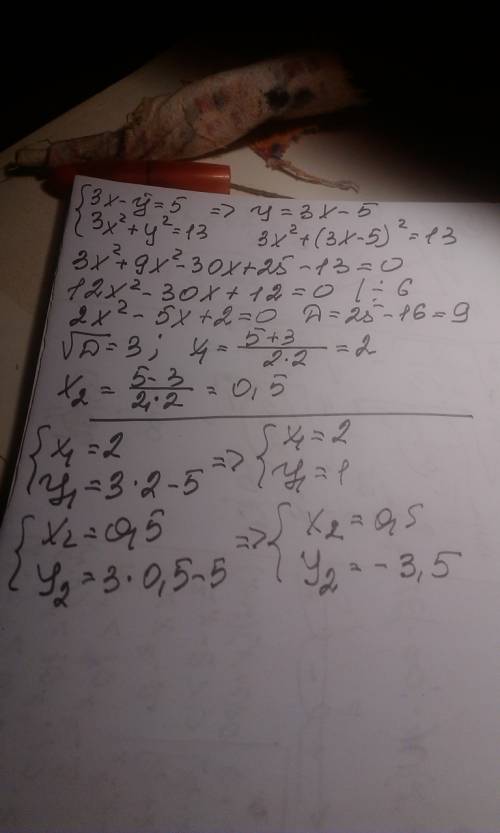 {3x-y=5 => y=3x-5
{3x²+y²=13 3x²+(3x-5)²=13
3x²+9x²-30x+25-13=0
12x²-30x+12=0 | ÷ 6
2x²-5x+2=0 D=25-16=9
√D=3; x₁ = (5+3)/(2·2) = 2
x₂ = (5-3)/(2·2) = 0,5
{x₁=2 => {x₁=2
{y₁=3·2-5 {y₁=1
{x₂=0,5 => {x₂=0,5
{y₂=3·0,5-5 {y₂=-3,5